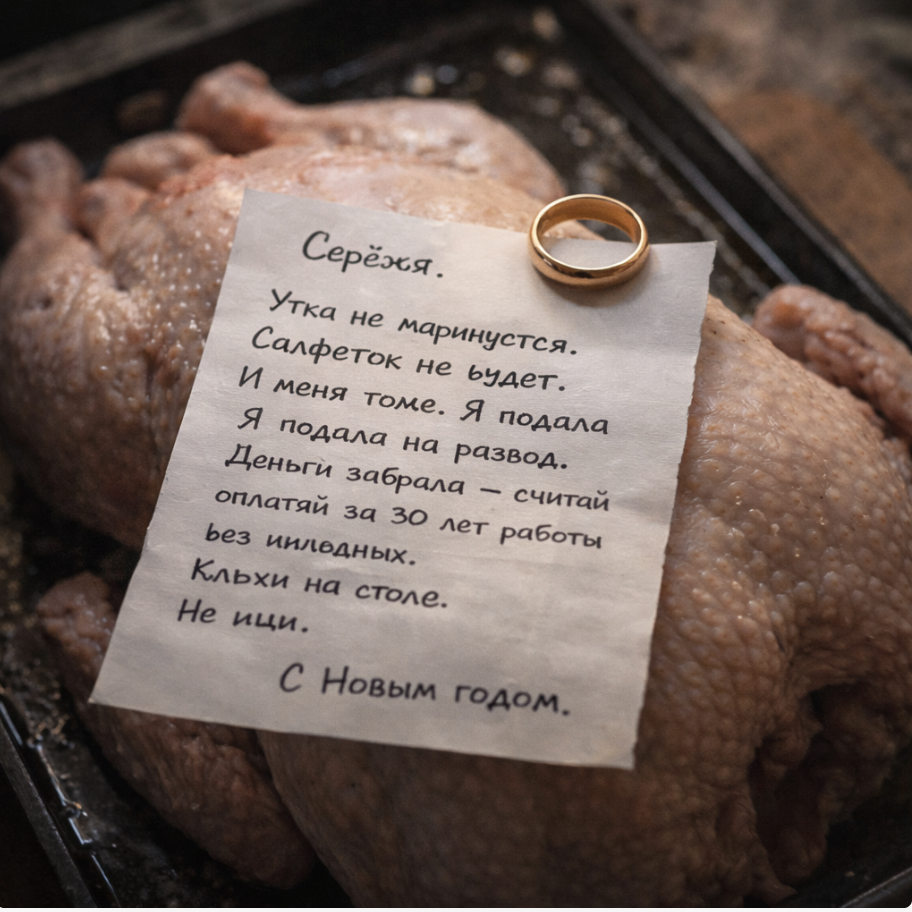 Серёжя.
Утка не маринустся.
Салфеток не ьудет.
И меня томе. Я подала
Я подала на развод.
Деньги забрала — считай
оплатяй за 30 лет работы
ьез иилѳдных.
Кльхи на столе.
Не ищи.
С Новым годом.